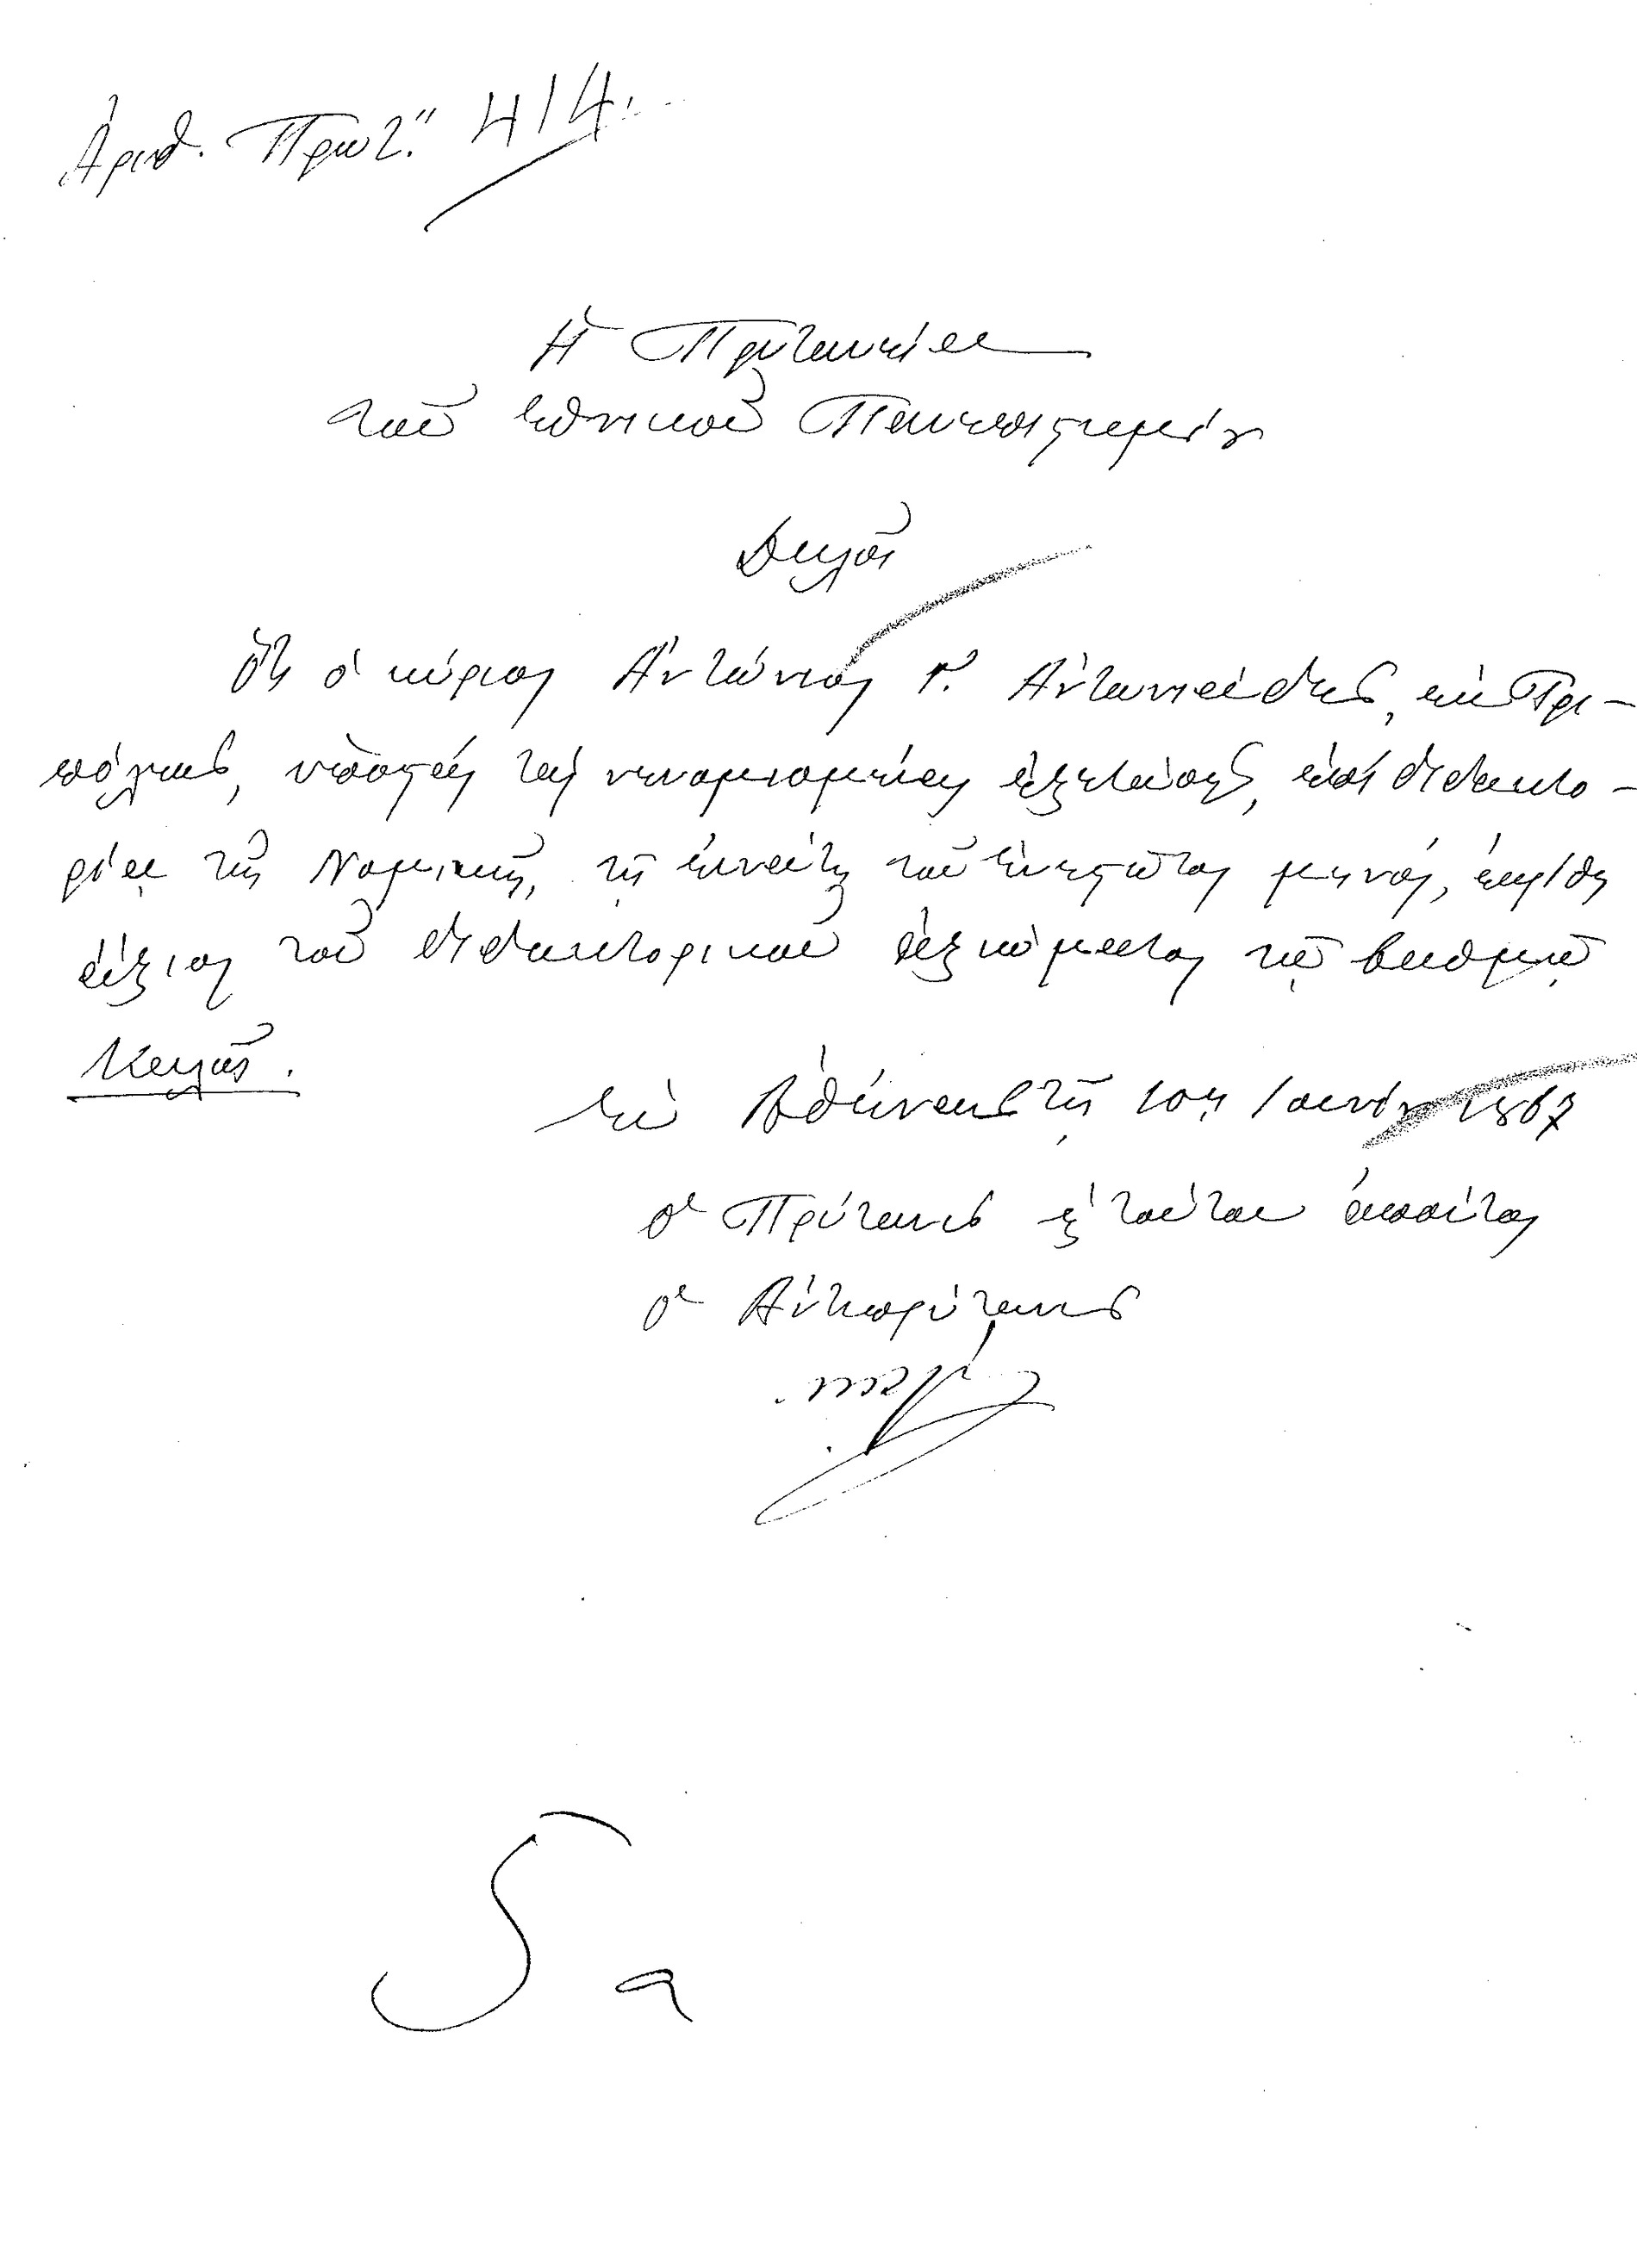 Ἀριθ. Πρωτ. 414.
Ἡ Πρυτανεία
τοῦ ἐθνικοῦ Πανεπιστημίου
Δηλοῖ
ὅτι ὁ κύριος Ἀντώνιος Γ. Ἀντωνιάδης, ἐκ Τρι-
πόλεως, ὑποστὰς τὰς νενομισμένας ἐξετάσεις, ἐπὶ διδακτο-
ρίᾳ τῆς Νομικῆς, τῇ ἐννάτῃ τοῦ ἐνεστῶτος μηνός, ἐκρίθη
ἄξιος τοῦ διδακτορικοῦ ἀξιώματος τῷ βαθμῷ
Καλῶς.
Ἐν Ἀθήναις τῇ 10ῃ 1867
Ὁ Πρύτανις
ὁ Ἀντιπρύτανις